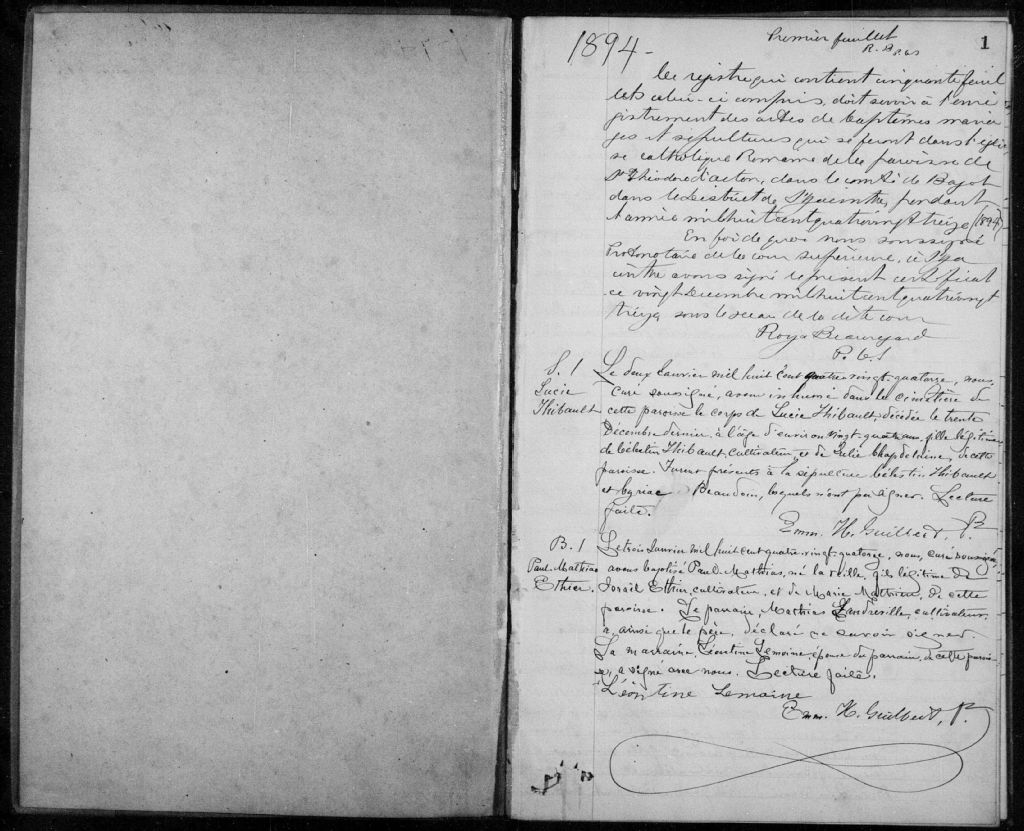 1894 -
Premier feuillet
R. B P.C.S
1
Ce registre qui contient cinquante feuil
lets celui-ci compris, doit servir à l'enre
gistrement des actes de baptêmes maria
ges et sépultures qui se feront dans l'égli
se catholique Romaine de la paroisse de
St Théodore d'acton, dans le comté de Bagot
dans le District de St Hyacinthe, pendant
l'année mil huit cent quatrevingt treize (1894)
En foi de quoi nous soussigné
Protonotaire de la cour supérieure, à St Hya
cinthe avons signé le présent certificat
ce vingt Decembre mil huit cent quatrevingt
treize sous le sceau de la dite cour
Roy & Beauregard
P. C. S
S. 1
Lucie
Thibault
Le deux Janvier mil huit cent quatre-vingt-quatorze, nous,
curé soussigné, avons inhumé dans le cimetière de
cette paroisse le corps de Lucie Thibault, décédée le trente
Décembre dernier, à l'âge d'environ vingt-quatre ans, fille légitime
de Célestin Thibault, cultivateur, et de Julie Chapdelaine, de cette
paroisse. Furent présents à la sépulture Célestin Thibault
et Cyriac Beaudoin, lesquels n'ont pu signer. Lecture
faite.
Emm. H. Guilbert, P.
B. 1
Paul-Mathias
Ethier.
Le trois Janvier mil huit cent quatre-vingt-quatorze, nous, curé soussigné,
avons baptisé Paul-Mathias, né la veille, fils légitime de
Israël Ethier, cultivateur, et de Marie Mathieu, de cette
paroisse. Le parrain, Mathias Landreville, cultivateur,
a, ainsi que le père, déclaré ne savoir signer.
La marraine, Léontine Lemoine, épouse du parrain, de cette parois-
se, a signé avec nous. Lecture faite.
Léontine Lemaine
Emm. H. Guilbert, P.